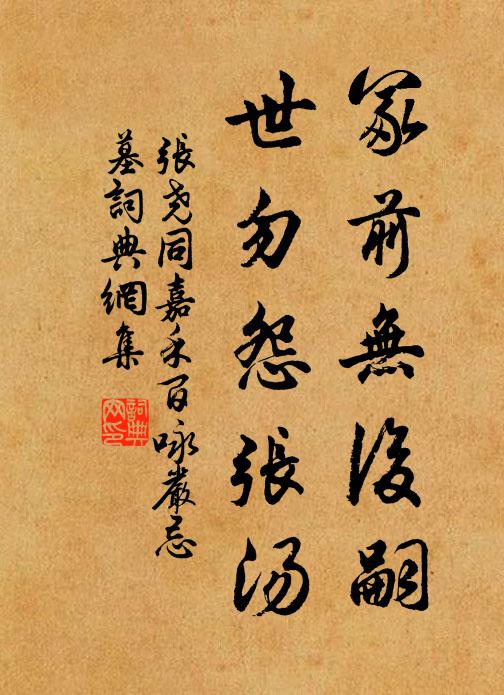 冢前無後嗣
世勿怨張湯
張尭同嘉禾百咏嚴忌
墓詞典網集
詞典网印